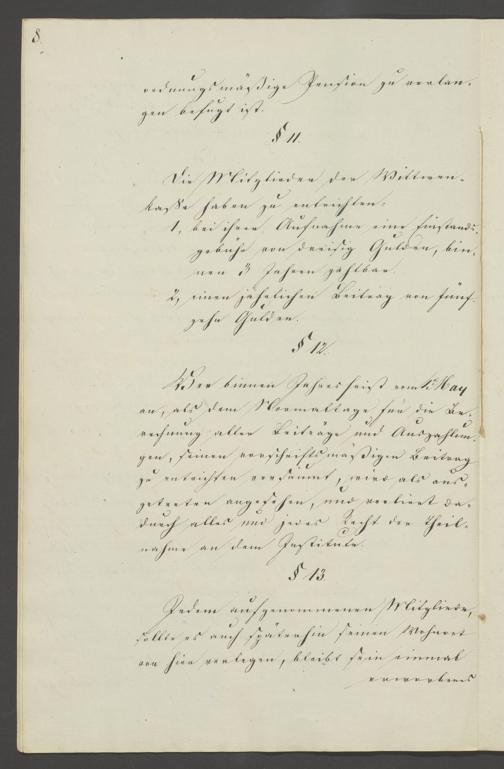 8.
ordnungsmäßige Pension zu verlan-
gen befugt ist.
§ 11.
Die Mitglieder der Wittwen-
kasse haben zu entrichten:
1, bei ihrer Aufnahme eine Einstands-
gebühr von dreisig Gulden, bin-
nen 3 Jahren zahlbar.
2, einen jährlichen Beitrag von fünf-
zehn Gulden.
§ 12.
Wer binnen Jahresfrist vom 1t May
an, als dem Normaltage für die Be-
rechnung aller Beiträge und Auszahlun-
gen, seinen vorschriftsmäßigen Beitrag
zu entrichten versäumt, wird als aus-
getreten angesehen, und verliert da-
durch alles und jedes Recht der Theil-
nahme an dem Institute.
§ 13.
Jedem aufgenommenen Mitgliede,
sollte es auch späterhin seinen Wohnort
von hier verlegen, bleibt sein einmal
erworbenes